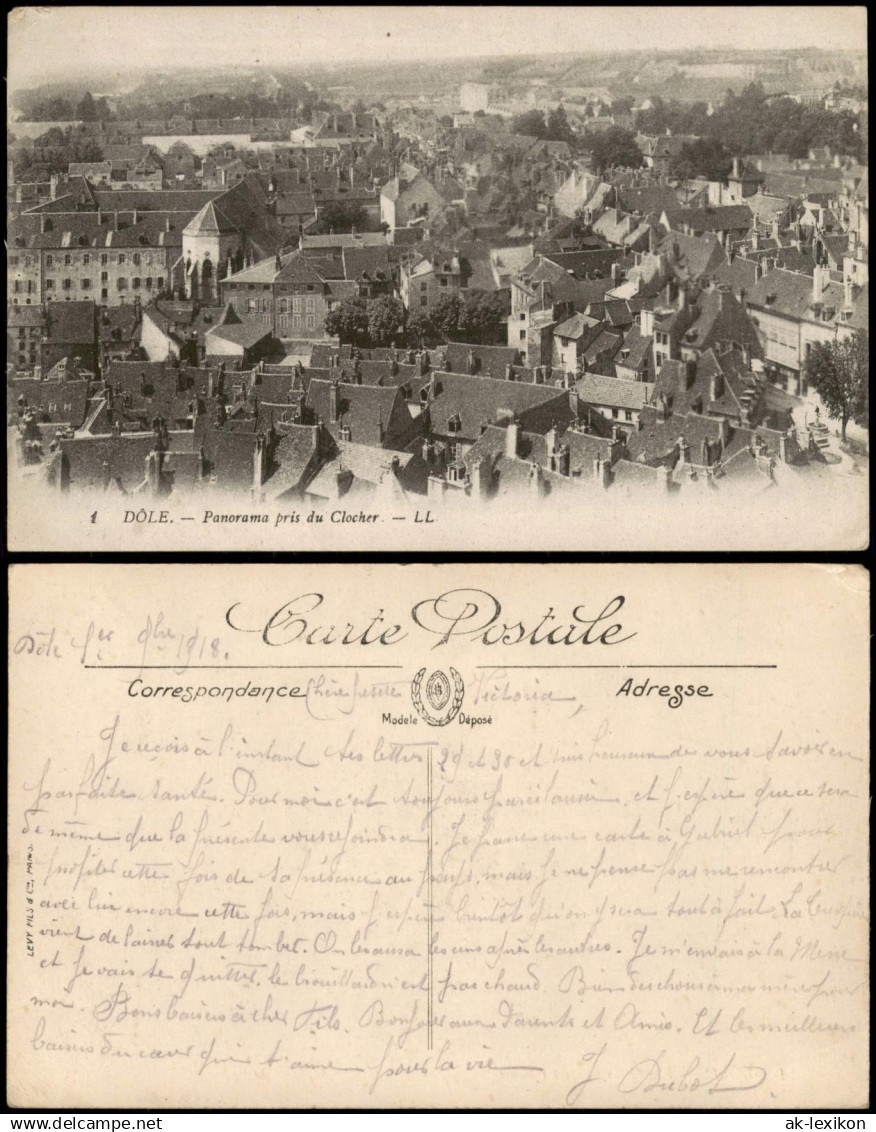 1 DÔLE. — Panorama pris du Clocher. — LL
Carte Postale
Dôle 1er 9bre 1918.
Correspondance
Adresse
Modele Déposé
LEVY FILS & Cie, PARIS.
Chère petite Victoria,
Je reçois à l'instant tes lettres 29 et 30 et suis heureux de vous savoir en
parfaite santé. Pour moi c'est toujours pareil aussi, et j'espère que ce sera
de même que la présente vous rejoindra. Je une carte à Gabriel pour
profiter cette fois de sa présence au pays, mais je ne pense pas me rencontrer
avec lui encore cette fois, mais j'espère bientôt qu'on y sera tout à fait. La
vient de tout tomber. On les aura les uns après les autres. Je m'en vais à la
et je vais te quitter, le brouillard n'est pas chaud. Bien des choses à ma mère pour
moi. Bons baisers à cher Fils. Bonjour aux Parents et Amis. Et les meilleurs
baisers du cœur qui t'aime pour la vie
J Dubot
ak-lexikon.com